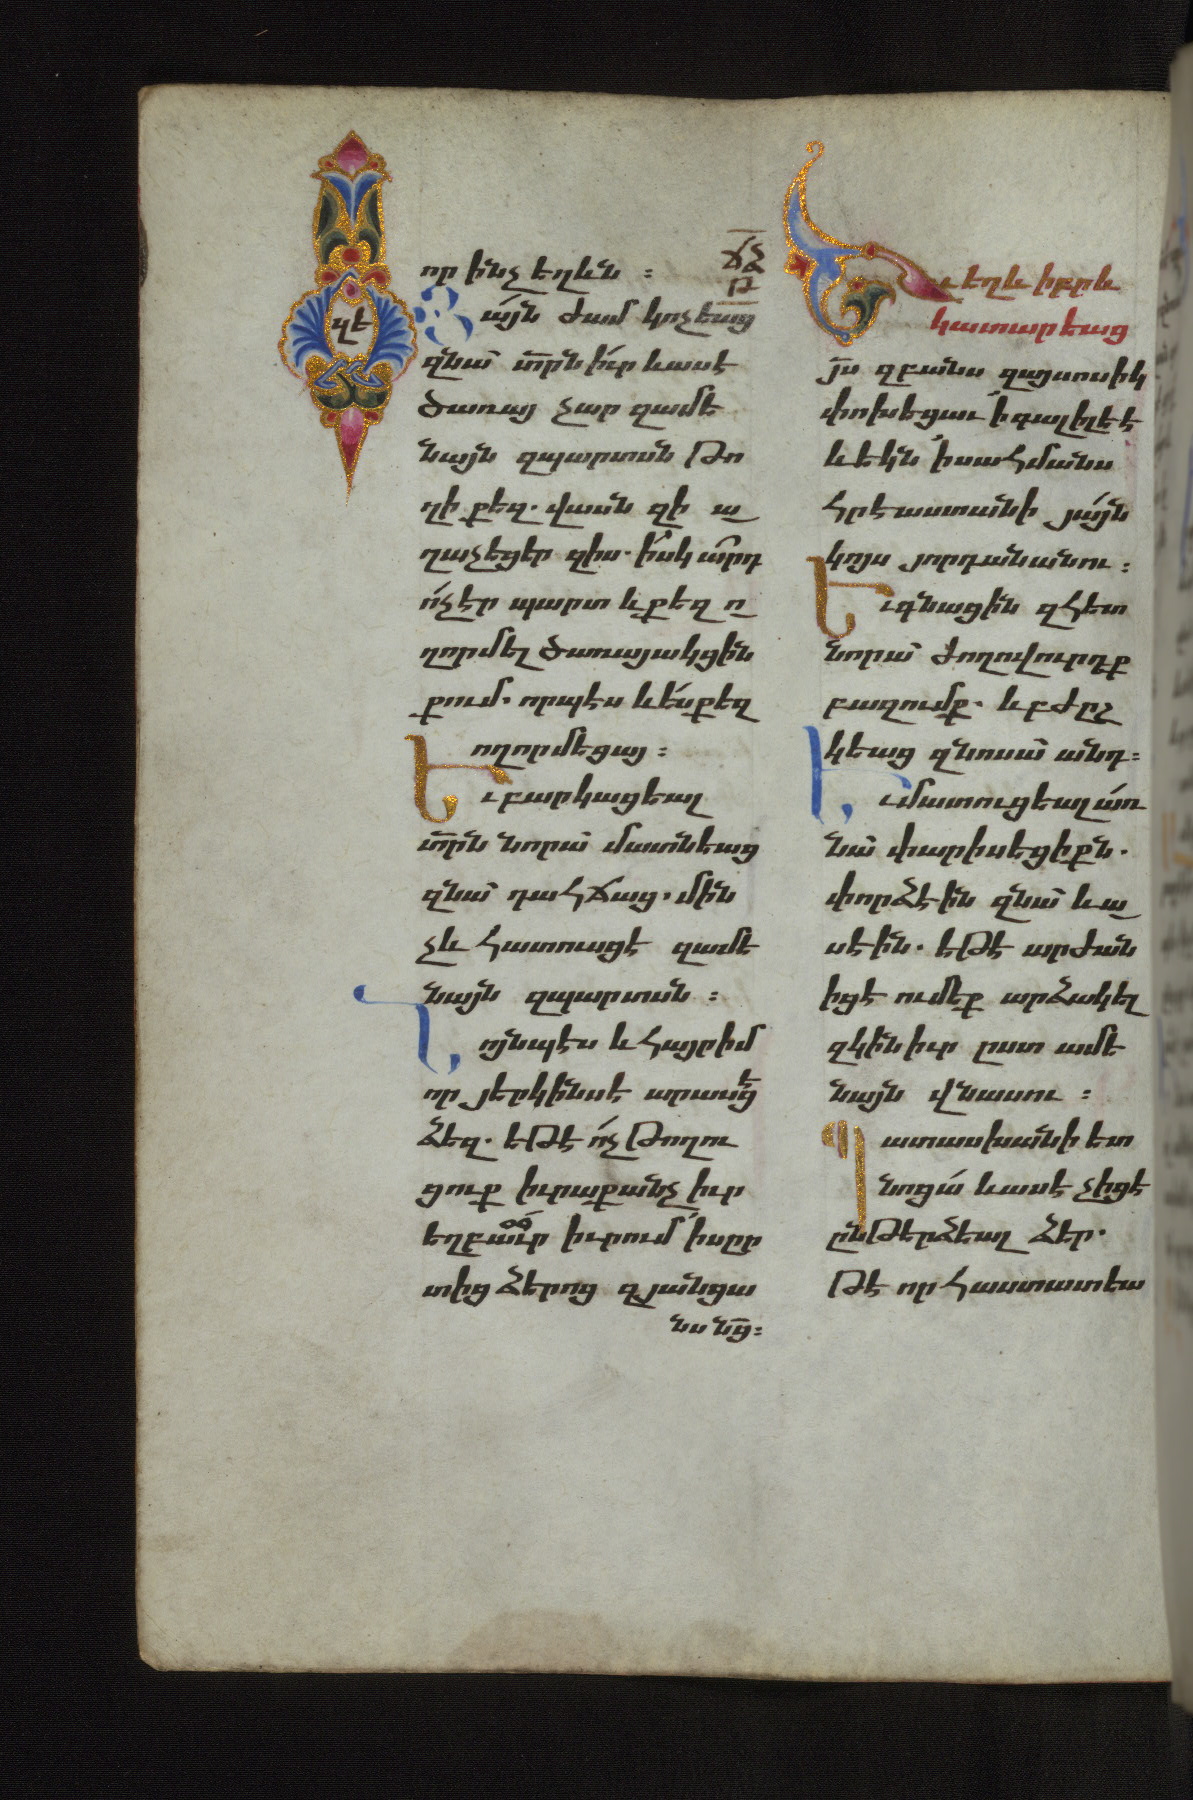 որ ինչ եղևն ։
ՃՁ
Թ
Յայն ժամ կոչեաց
զնա տրն իւր և ասէ
ծառայ չար զամե
նայն զպարտսն թո
ղի քեզ. վասն զի ա
ղաչեցեր զիս. իսկ արդ
ո՛չ էր պարտ և քեզ ո
ղորմել ծառայակցին
քում. որպէս և ես քեզ
ողորմեցայ ։
Եւ բարկացեալ
տրն նորա մատնեաց
զնա դահճաց. մին
չև հատուսցէ զամե
նայն զպարտսն ։
Նոյնպէս և հայր իմ
որ յերկինսէ արասցէ
ձեզ. եթէ ո՛չ թողու
ցուք իւրաքանչ իւր
եղբաւր իւրում ի սըր
տից ձերոց զյանցա
նս նց։
զէ
Եւ եղև իբրև
կատարեաց
յս զբանս զայսոսիկ
փոխեցաւ ի գալիլեէ
և եկն ի սահմանս
հրէաստանի յայն
կոյս յորդանանու ։
Եւ գնացին զհետ
նորա ժողովուրդք
բազումք. և բժըշ
կեաց զնոսա անդ։
Եւ մատուցեալ առ
նա փարիսեցիքն.
փորձէին զնա և ա
սէին. եթէ արժան
իցէ ումեք արձակել
զկին իւր ըստ ամե
նայն վնասու ։
Պատասխանի ետ
նոցա և ասէ չիցէ
ընթերձեալ ձեր.
թէ որ հաստատեա